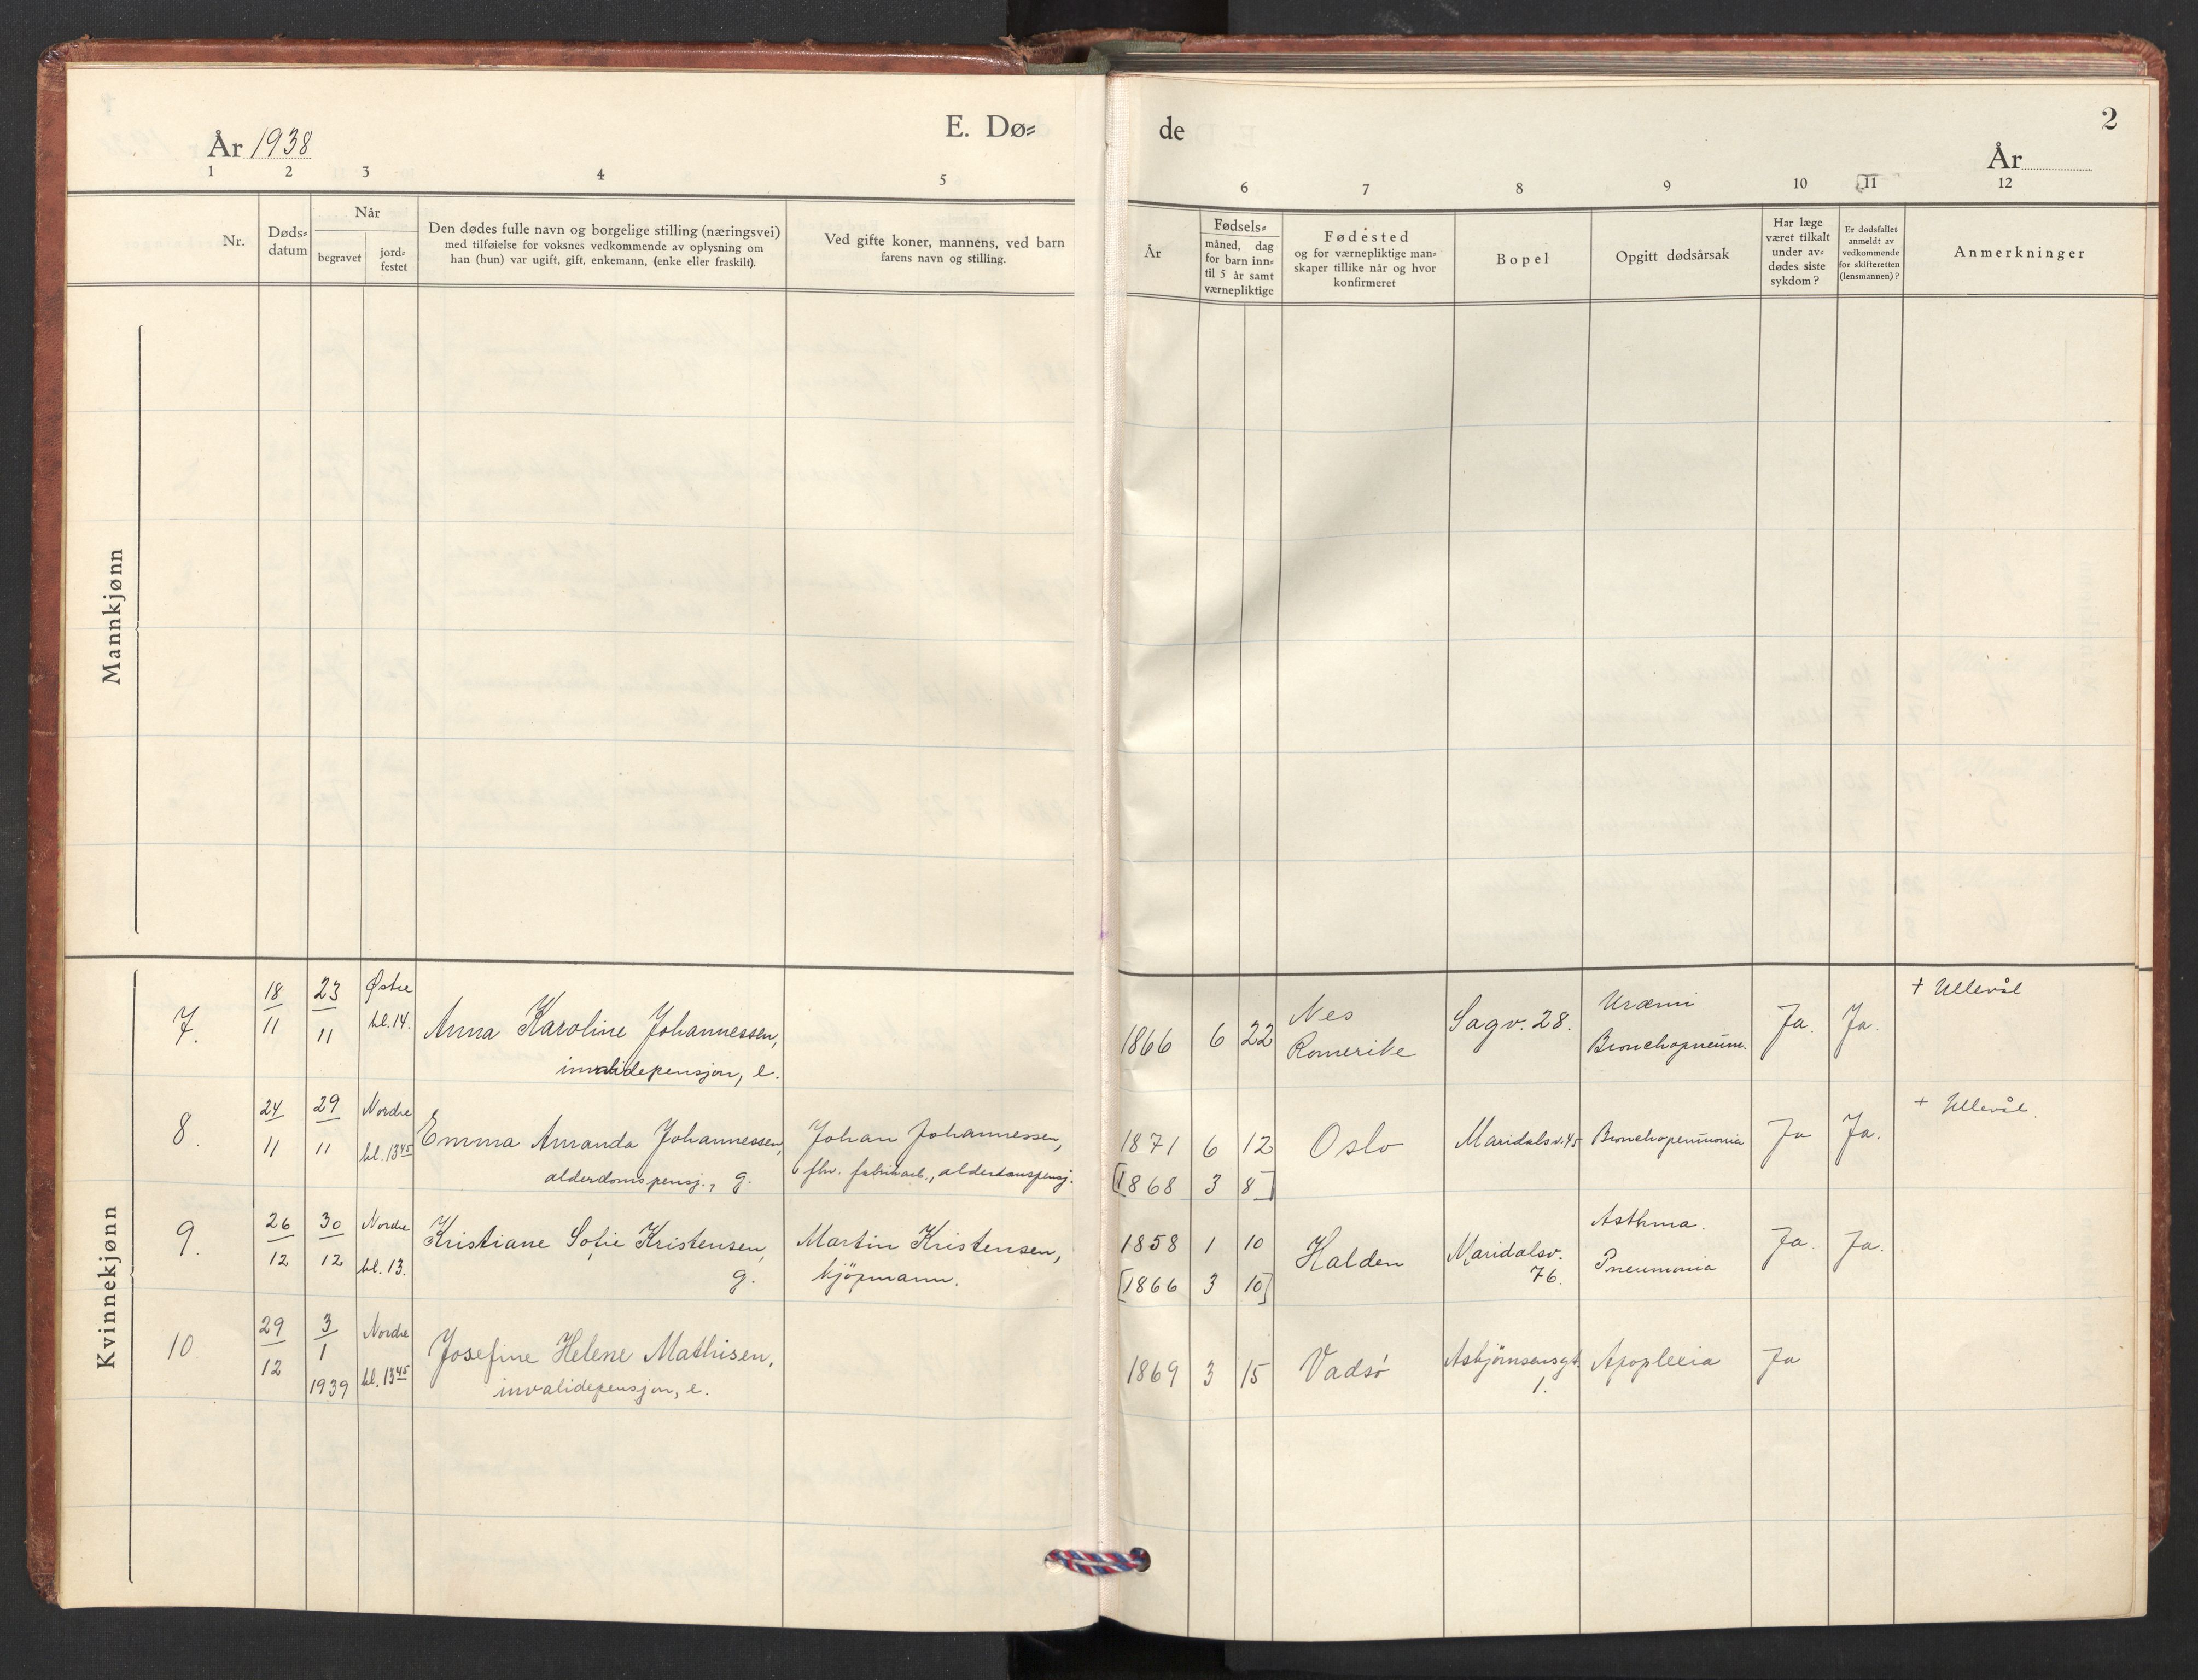 E. Dø-
de
2
År 1938
År
1 2 3 4 5
6 7 8 9 10 11 12
Nr.
Døds-
datum
Når
begravet
jord-
festet
Den dødes fulle navn og borgelige stilling (næringsvei)
med tilføielse for voksnes vedkommende av oplysning om
han (hun) var ugift, gift, enkemann, (enke eller fraskilt).
Ved gifte koner, mannens, ved barn
farens navn og stilling.
År
Fødsels-
måned, dag
for barn inn-
til 5 år samt
værnepliktige
Fødested
og for værnepliktige man-
skaper tillike når og hvor
konfirmeret
Bopel
Opgitt dødsårsak
Har læge
været tilkalt
under av-
dødes siste
sykdom?
Er dødsfallet
anmeldt av
vedkommende
for skifteretten
(lensmannen)?
Anmerkninger
Mannkjønn
Kvinnekjønn
7.
18
11
23
11
Østre
kl. 14.
Anna Karoline Johannessen,
invalidepensjon, e.
1866 6 22
Nes
Romerike
Sagv. 28.
Uræmi
Bronchopneum.
Ja. Ja.
+ Ullevål
8.
24
11
29
11
Nordre
kl. 13 45
Emma Amanda Johannessen,
alderdomspensj., g.
Johan Johannessen,
fhv. fabrikarb., alderdomspensj.
1871 6 12
[1868 3 8]
Oslo
Maridalsv. 45
Bronchopneumonia
Ja Ja.
+ Ullevål.
9.
26
12
30
12
Nordre
kl. 13.
Kristiane Sofie Kristensen,
g.
Martin Kristensen,
kjöpmann.
1858 1 10
[1866 3 10]
Halden
Maridalsv.
76.
Asthma.
Pneumonia
Ja. Ja.
10
29
12
3
1
1939
Nordre
kl. 13 45
Josefine Helene Mathisen,
invalidepensjon, e.
1869 3 15
Vadsö
Asbjörnsensgt.
1.
Apoplexia
Ja